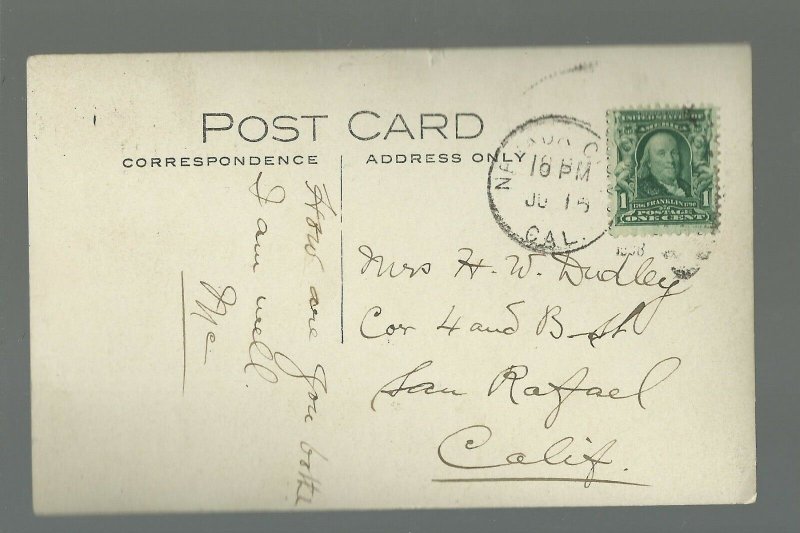 POST CARD
CORRESPONDENCE
ADDRESS ONLY
How are you both
I am well.
Me
CAL.
10 PM
JU 15
1908
UNITED STATES OF
AMERICA
1 1706 FRANKLIN 1790 1
POSTAGE
ONE CENT
Mrs H. W. Dudley
Cor 4 and B st
San Rafael
Calif.